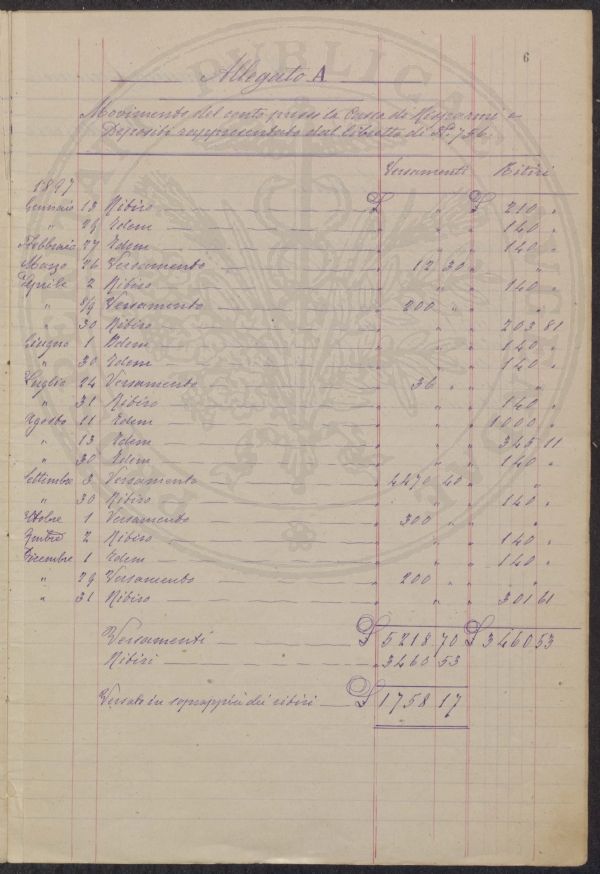 6
Allegato A
Movimento del conto presso la Cassa di Risparmi e
Depositi rappresentato dal libretto di N. 756.
Versamenti Ritiri
1897
Gennaio 12 Ritiro £ " £ 210 "
" 29 Idem " " " 140 "
Febbraio 27 Idem " " " 140 "
Marzo 26 Versamento " 12 30 " "
Aprile 2 Ritiro " " " 140 "
" 8/9 Versamento " 200 " " "
" 30 Ritiro " " " 203 81
Giugno 1 Idem " " " 140 "
" 30 Idem " " " 140 "
Luglio 24 Versamento " 36 " " "
" 31 Ritiro " " " 140 "
Agosto 11 Idem " " " 1000 "
" 13 Idem " " " 345 11
" 30 Idem " " " 140 "
Settembre 3 Versamento " 4470 40 " "
" 30 Ritiro " " " 140 "
Ottobre 1 Versamento " 300 " " "
9mbre 2 Ritiro " " " 140 "
Dicembre 1 Idem " " " 140 "
" 29 Versamento " 200 " " "
" 31 Ritiro " " " 301 61
Versamenti £ 5218 70 £ 3460 53
Ritiri " 3460 53
Versato in soprappiù dei ritiri £ 1758 17